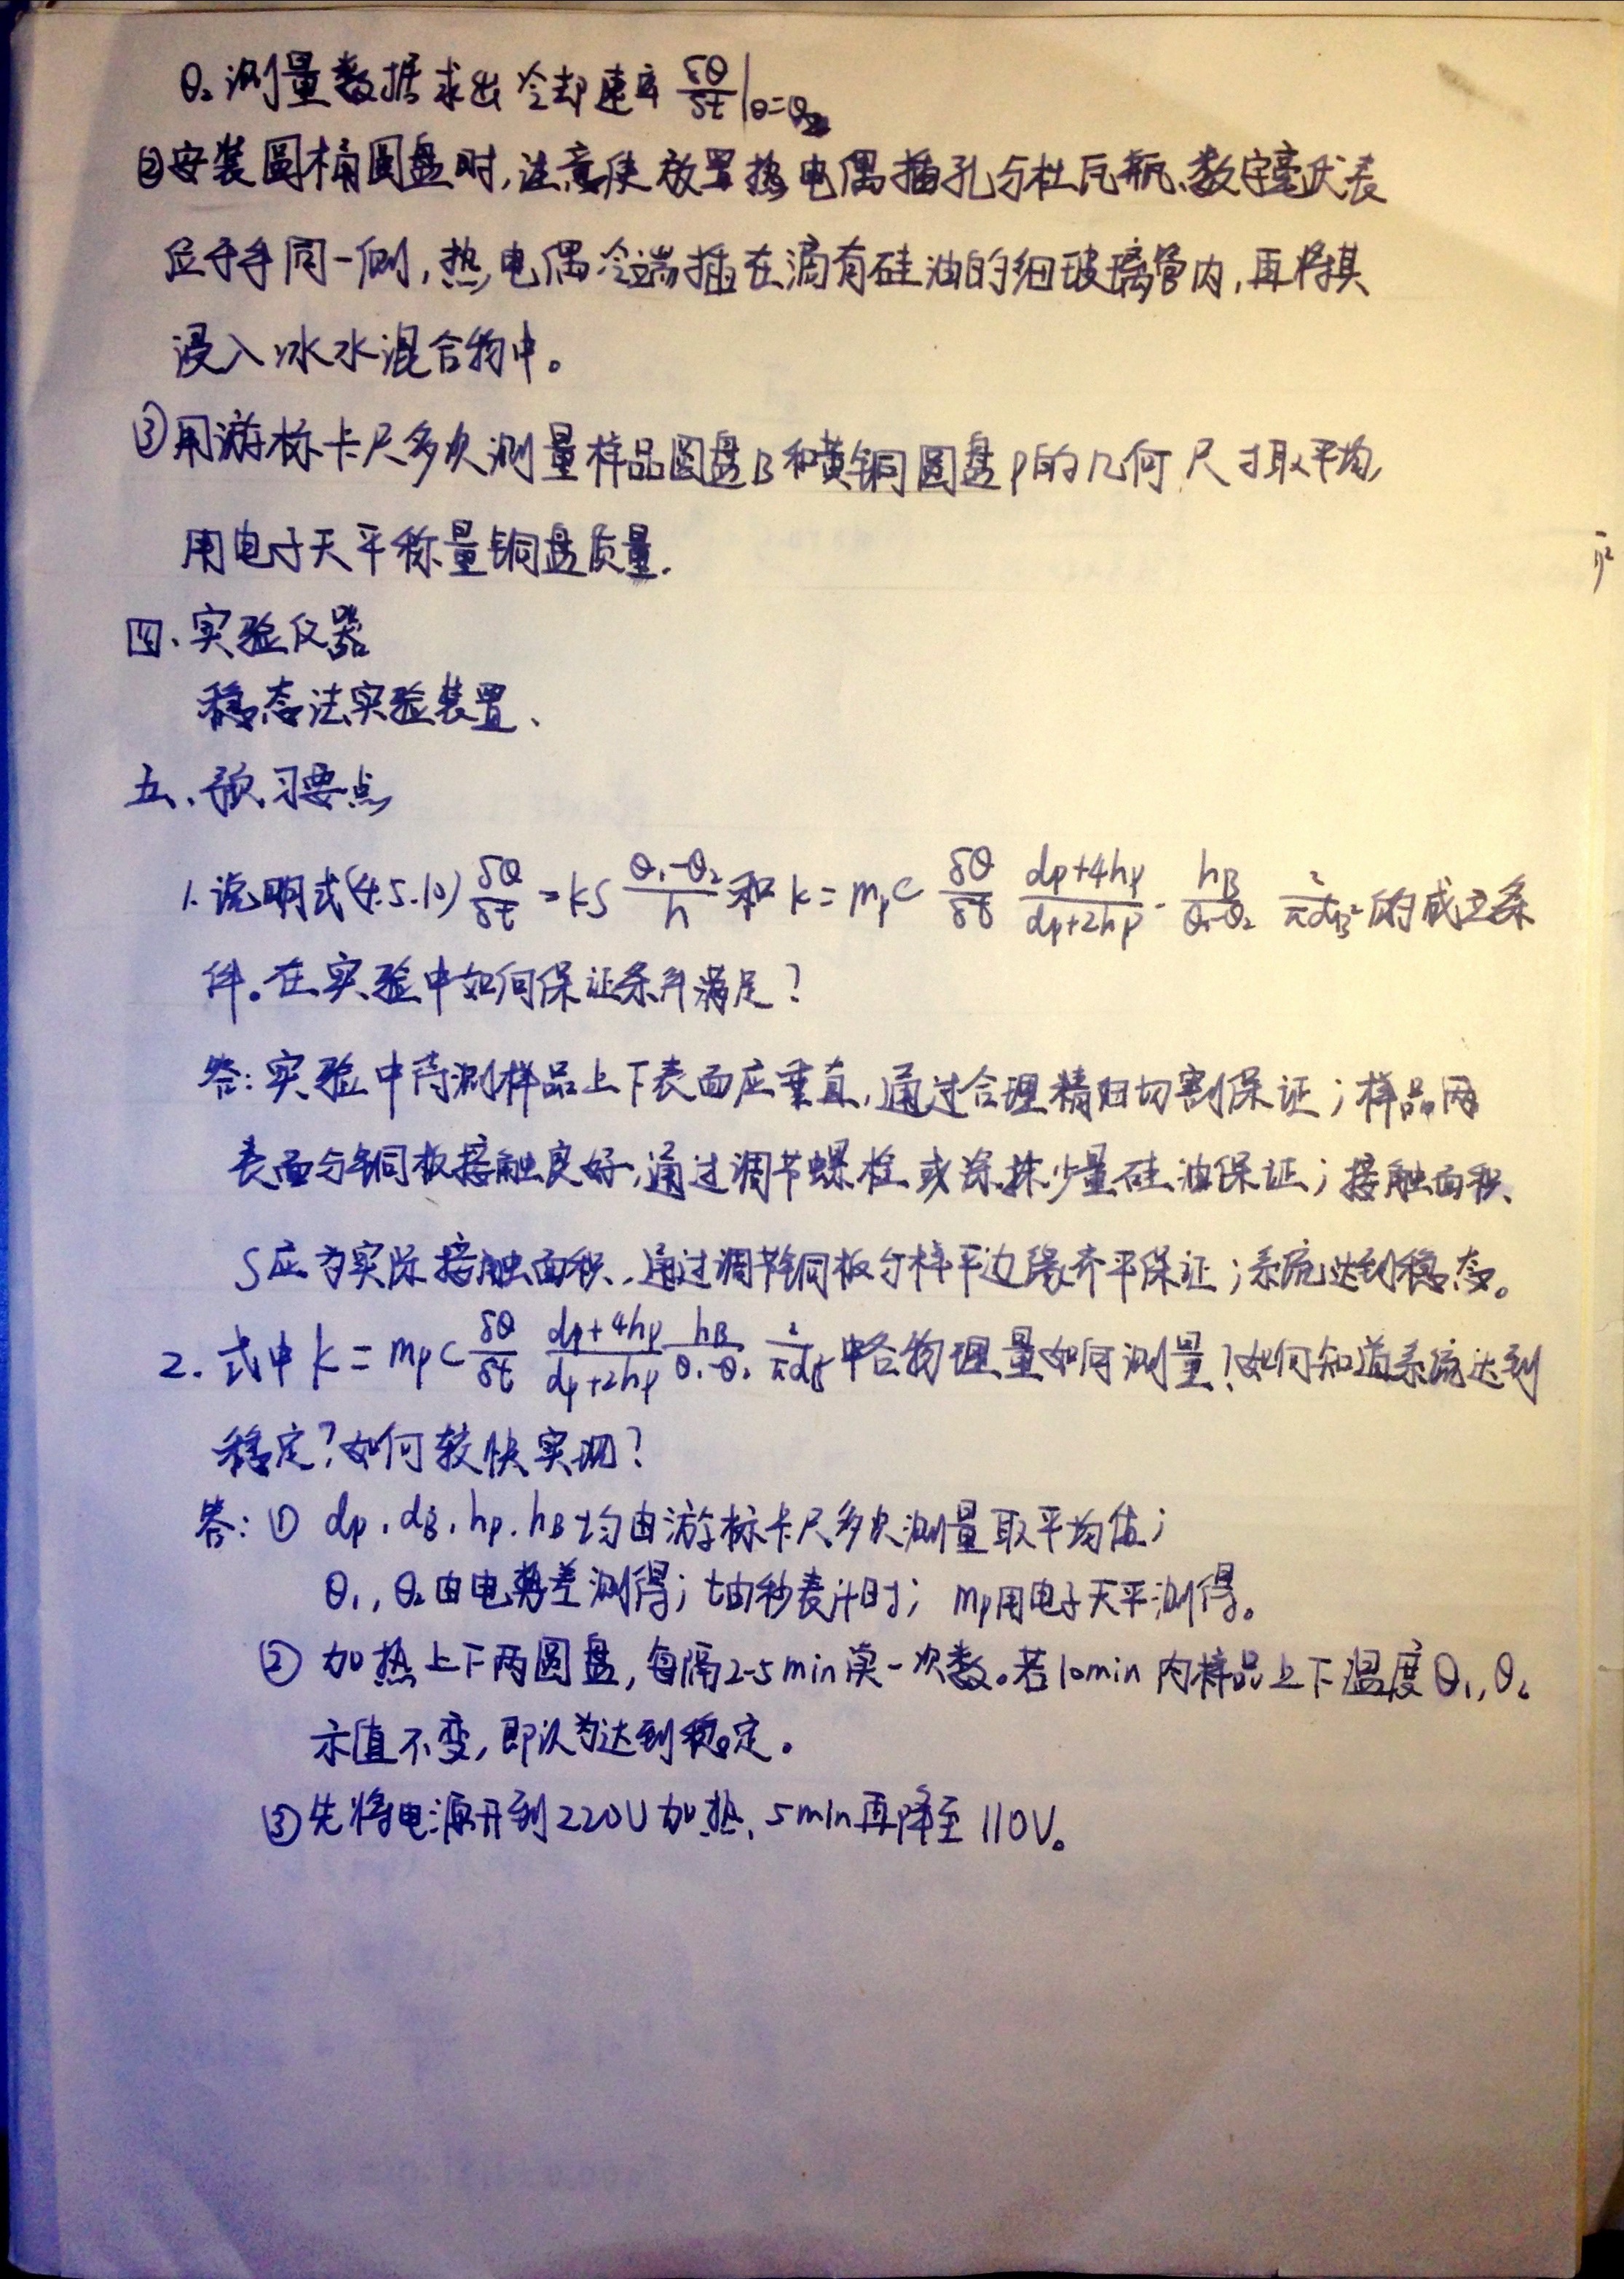 θ₂测量数据求出冷却速率 δθ/δt|θ=θ₂
②安装圆桶圆盘时,注意使放置热电偶插孔与杜瓦瓶、数字毫伏表
位于同一侧,热电偶冷端插在滴有硅油的细玻璃管内,再将其
浸入冰水混合物中。
③用游标卡尺多次测量样品圆盘B和黄铜圆盘P的几何尺寸取平均,
用电子天平称量铜盘质量.
四、实验仪器
稳态法实验装置、
五、预习要点
1.说明式(4.5.10) δθ/δt = kS (θ₁-θ₂)/h 和 k = mpc δθ/δt (dp+4hp)/(dp+2hp) · hB/(θ₁-θ₂) 2/(πdB²) 的成立条
件。在实验中如何保证条件满足?
答:实验中待测样品上下表面应垂直,通过合理精切割保证;样品两
表面与铜板接触良好,通过调节螺栓或涂抹少量硅油保证;接触面积
S应为实际接触面积,通过调节铜板与样平边缘齐平保证;系统达到稳态。
2. 式中 k = mpc δθ/δt (dp+4hp)/(dp+2hp) hB/(θ₁-θ₂) 2/(πdB²) 中各物理量如何测量?如何知道系统达到
稳定?如何较快实现?
答:① dp、dB、hp、hB均由游标卡尺多次测量取平均值;
θ₁,θ₂由电势差测得;t由秒表计时; mp用电子天平测得。
② 加热上下两圆盘,每隔2-5min读一次数。若10min内样品上下温度θ₁,θ₂
示值不变,即认为达到稳定。
③先将电源开到220V加热、5min再降至110V。